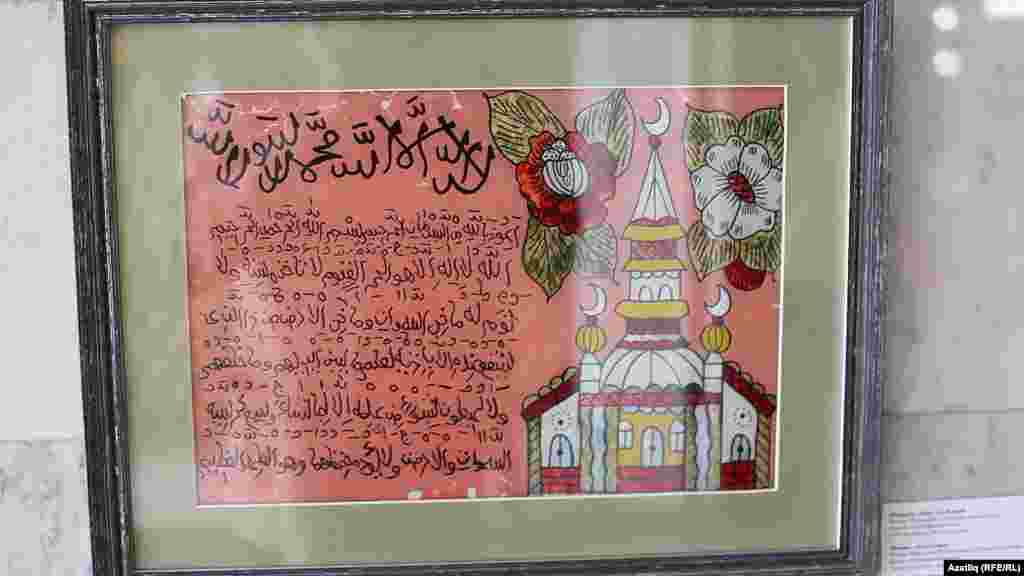 لا اله الا الله محمد رسول الله
اعوذ بالله من الشيطان الرجيم بسم الله الرحمن الرحيم
الله لا اله الا هو الحي القيوم لا تأخذه سنة ولا
نوم له ما في السموات وما في الارض من ذا الذي
يشفع عنده الا باذنه يعلم ما بين ايديهم وما خلفهم
ولا يحيطون بشئ من علمه الا بما شاء وسع كرسيه
السموات والارض ولا يؤده حفظهما وهو العلي العظيم
Azatliq (RFE/RL)